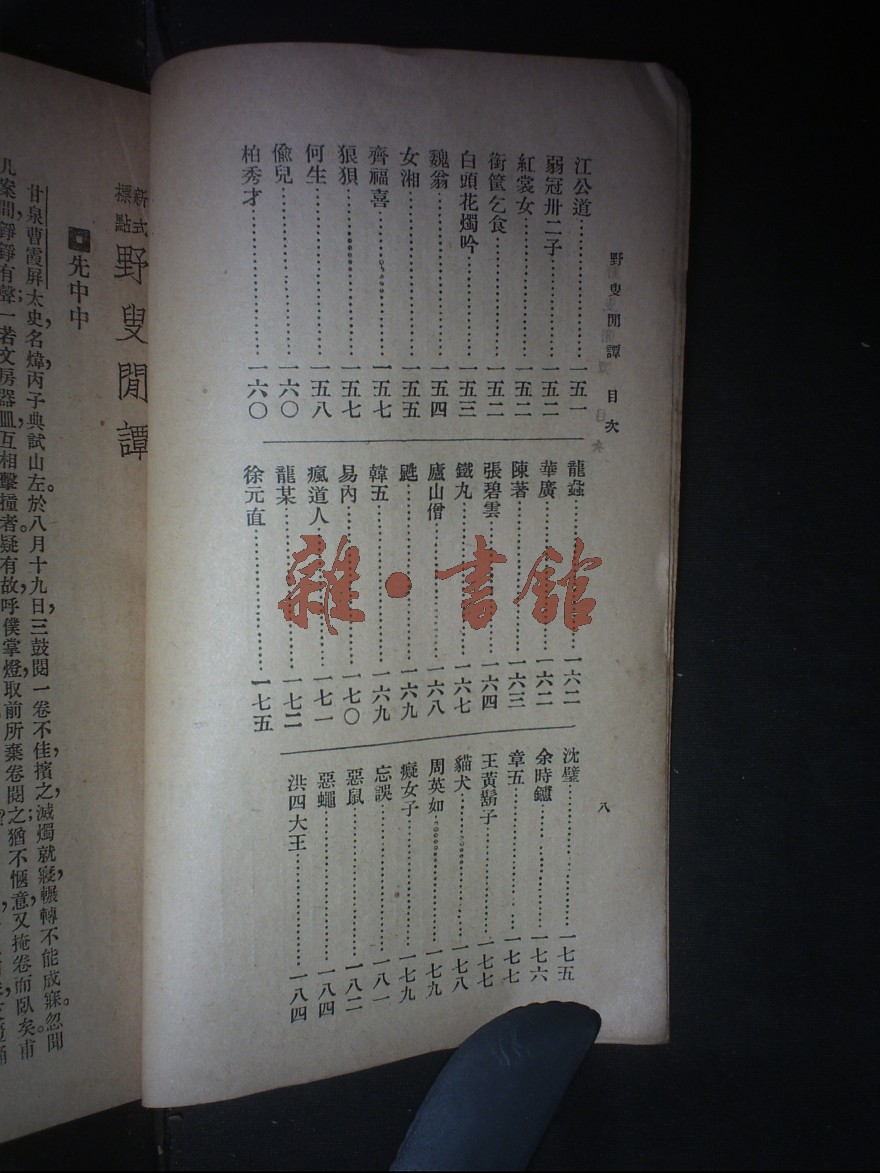 野叟閒譚 目次
八
江公道……一五一
弱冠卅二子……一五二
紅裳女……一五二
銜筐乞食……一五二
白頭花燭吟……一五三
魏翁……一五四
女湘……一五五
齊福喜……一五七
狼狽……一五七
何生……一五八
偷兒……一六〇
柏秀才……一六〇
龍蝨……一六二
華廣……一六二
陳著……一六三
張碧雲……一六四
鐵九……一六七
廬山僧……一六八
韓五……一六九
易內……一七〇
瘋道人……一七一
龍某……一七二
徐元直……一七五
沈璧……一七五
余時鏽……一七六
章五……一七七
王黃鬍子……一七七
貓犬……一七八
周英如……一七九
癡女子……一七九
忘誤……一八一
惡鼠……一八二
惡蠅……一八四
洪四大王……一八四
雜•書館
新式標點 野叟閒譚
先中中
甘泉曹霞屏太史，名煒，丙子典試山左。於八月十九日，三鼓閱一卷不佳，擯之；滅燭就寢，輾轉不能成寐。忽聞
几案間，錚錚有聲，一若文房器皿，互相擊撞者。疑有故，呼僕掌燈，取前所棄卷閱之，猶不愜意，又掩卷而臥矣。甫